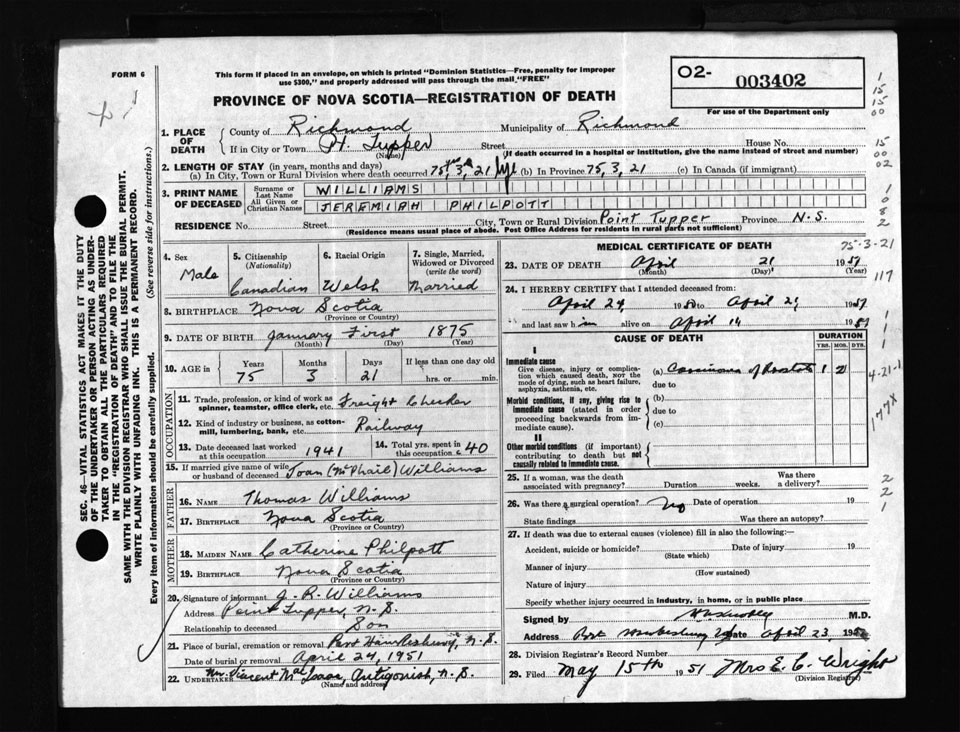 FORM 6
This form if placed in an envelope, on which is printed "Dominion Statistics—Free, penalty for improper
use $300," and properly addressed will pass through the mail "FREE"
O2- 003402
For use of the Department only
PROVINCE OF NOVA SCOTIA—REGISTRATION OF DEATH
1. PLACE OF DEATH
County of Richmond Municipality of Richmond
If in City or Town Pt. Tupper Street House No.
(Name) (If death occurred in a hospital or institution, give the name instead of street and number)
2. LENGTH OF STAY (in years, months and days)
(a) In City, Town or Rural Division where death occurred 75, 3, 21 (b) In Province 75, 3, 21 (c) In Canada (if immigrant)
3. PRINT NAME OF DECEASED
Surname or Last Name WILLIAMS
All Given or Christian Names JEREMIAH PHILPOTT
RESIDENCE No. Street City, Town or Rural Division Point Tupper Province N.S.
(Residence means usual place of abode. Post Office Address for residents in rural parts not sufficient)
4. Sex
Male
5. Citizenship (Nationality)
Canadian
6. Racial Origin
Welsh
7. Single, Married, Widowed or Divorced (write the word)
Married
8. BIRTHPLACE Nova Scotia
(Province or Country)
9. DATE OF BIRTH January First 1875
(Month) (Day) (Year)
10. AGE in Years Months Days If less than one day old
75 3 21 hrs. or min.
OCCUPATION
11. Trade, profession, or kind of work as
spinner, teamster, office clerk, etc. Freight Checker
12. Kind of industry or business, as cotton-
mill, lumbering, bank, etc. Railway
13. Date deceased last worked
at this occupation 1941
14. Total yrs. spent in
this occupation 40
15. If married give name of wife
or husband of deceased Joan (McPhail) Williams
FATHER
16. NAME Thomas Williams
17. BIRTHPLACE Nova Scotia
(Province or Country)
MOTHER
18. MAIDEN NAME Catherine Philpott
19. BIRTHPLACE Nova Scotia
(Province or Country)
20. Signature of informant J. R. Williams
Address Point Tupper, N.S.
Relationship to deceased Son
21. Place of burial, cremation or removal Port Hawkesbury, N.S.
Date of burial or removal April 24, 1951
22. UNDERTAKER Vincent MacIsaac, Antigonish, N.S.
(Name and address)
MEDICAL CERTIFICATE OF DEATH
23. DATE OF DEATH April 21 1951
(Month) (Day) (Year)
24. I HEREBY CERTIFY that I attended deceased from:
April 24, 1950 to April 21 1951
and last saw him alive on April 14 1951
CAUSE OF DEATH DURATION
YRS. MOS. DYS.
I
Immediate cause
Give disease, injury or complica-
tion which caused death, NOT the
mode of dying, such as heart failure,
asphyxia, asthenia, etc.
(a) Carcinoma of Prostate 1
due to
Morbid conditions, if any, giving rise to
immediate cause (stated in order
proceeding backwards from im-
mediate cause).
(b)
due to
(c)
II
Other morbid conditions (if important)
contributing to death but not
causally related to immediate cause.
25. If a woman, was the death
associated with pregnancy? Duration weeks. Was there a delivery?
26. Was there a surgical operation? No Date of operation 19
State findings Was there an autopsy?
27. If death was due to external causes (violence) fill in also the following:—
Accident, suicide or homicide? Date of injury 19
(State which)
Manner of injury
(How sustained)
Nature of injury
Specify whether injury occurred in industry, in home, or in public place
Signed by M.D.
Address Port Hawkesbury Date April 23, 1951
28. Division Registrar's Record Number
29. Filed May 15th 1951 Mrs E. C. Wright
(Division Registrar)
SEC. 46—VITAL STATISTICS ACT MAKES IT THE DUTY
OF THE UNDERTAKER OR PERSON ACTING AS UNDER-
TAKER TO OBTAIN ALL THE PARTICULARS REQUIRED
IN THE "REGISTRATION OF DEATH" AND TO FILE THE
SAME WITH THE DIVISION REGISTRAR WHO SHALL ISSUE THE BURIAL PERMIT.
WRITE PLAINLY WITH UNFADING INK. THIS IS A PERMANENT RECORD.
Every item of information should be carefully supplied. (See reverse side for instructions.)
1
15
15
00
15
00
02
1
0
8
2
75-3-21
117
1
1
1
4-21-1
177X
2
2
1